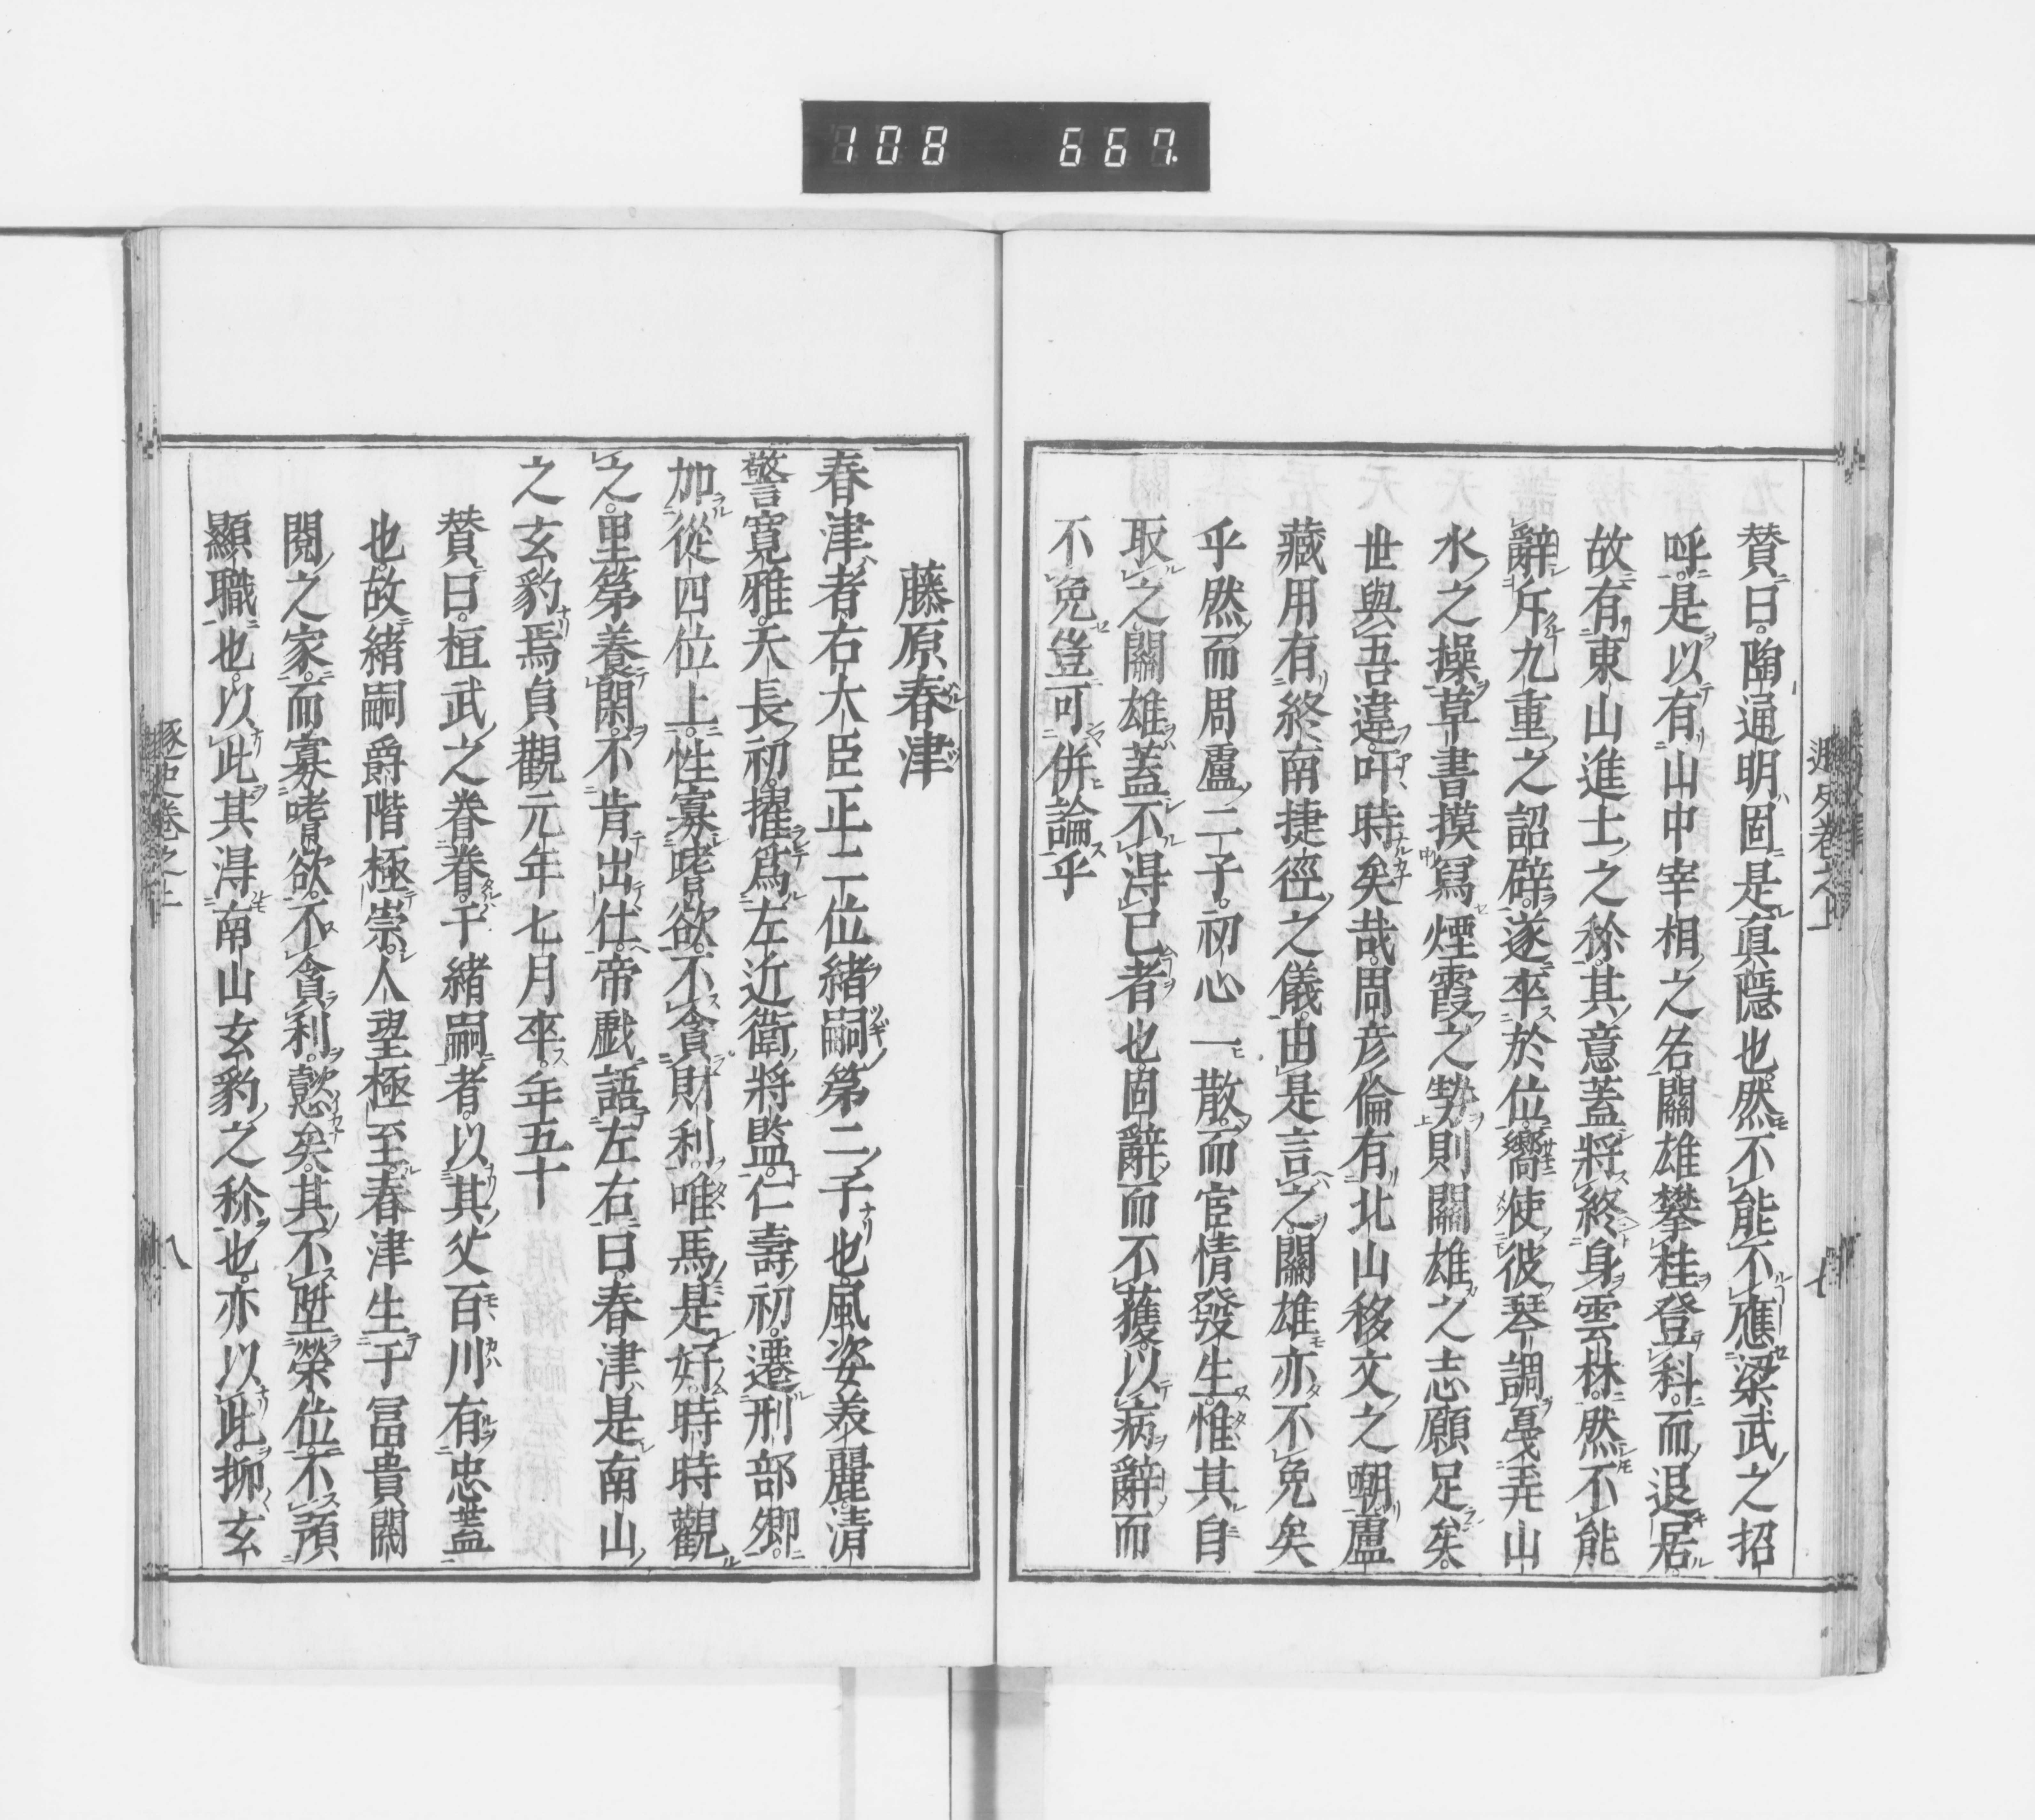 108 667.
賛曰。陶通明固是眞隱也。然不能不應梁武之招
呼。是以有山中宰相之名。關雄攀桂登科。而退居。
故有東山進士之称。其意蓋將終身雲林。然不能
辭斥九重之詔辟。遂卒於位。嚮使彼琴調戞弄山
水之操。草書摸寫煙霞之勢。則關雄之志願足矣。
世與吾違。叶時矣哉。周彦倫有北山移文之嘲。盧
藏用有終南捷徑之儀。由是言之。關雄亦不免矣
乎。然而周盧二子。初心一散。而宦情發生。惟其自
取之。關雄蓋不得已者也。固辭而不獲。以病辭而
不免。豈可併論乎
遯史卷之上 七
藤原春津
春津者右大臣正二位緒嗣第二子也。風姿美麗。清
警寛雅。天長初。擢爲左近衛將監。仁壽初。遷刑部卿。
加從四位上。性寡嗜欲。不貪財利。唯馬是好。時時觀
之。里第養閑。不肯出仕。帝戯語左右曰。春津是南山
之玄豹焉。貞觀元年七月卒。年五十
賛曰。桓武之眷眷。于緒嗣者。以其父百川有忠蓋
也。故緒嗣爵階極崇。人望極至。春津生于冨貴閥
閲之家。而寡嗜欲。不貪利。懿矣。其不陞榮位。不預
顯職也。以此其得南山玄豹之称也。亦以此。抑玄
遯史卷之上 八